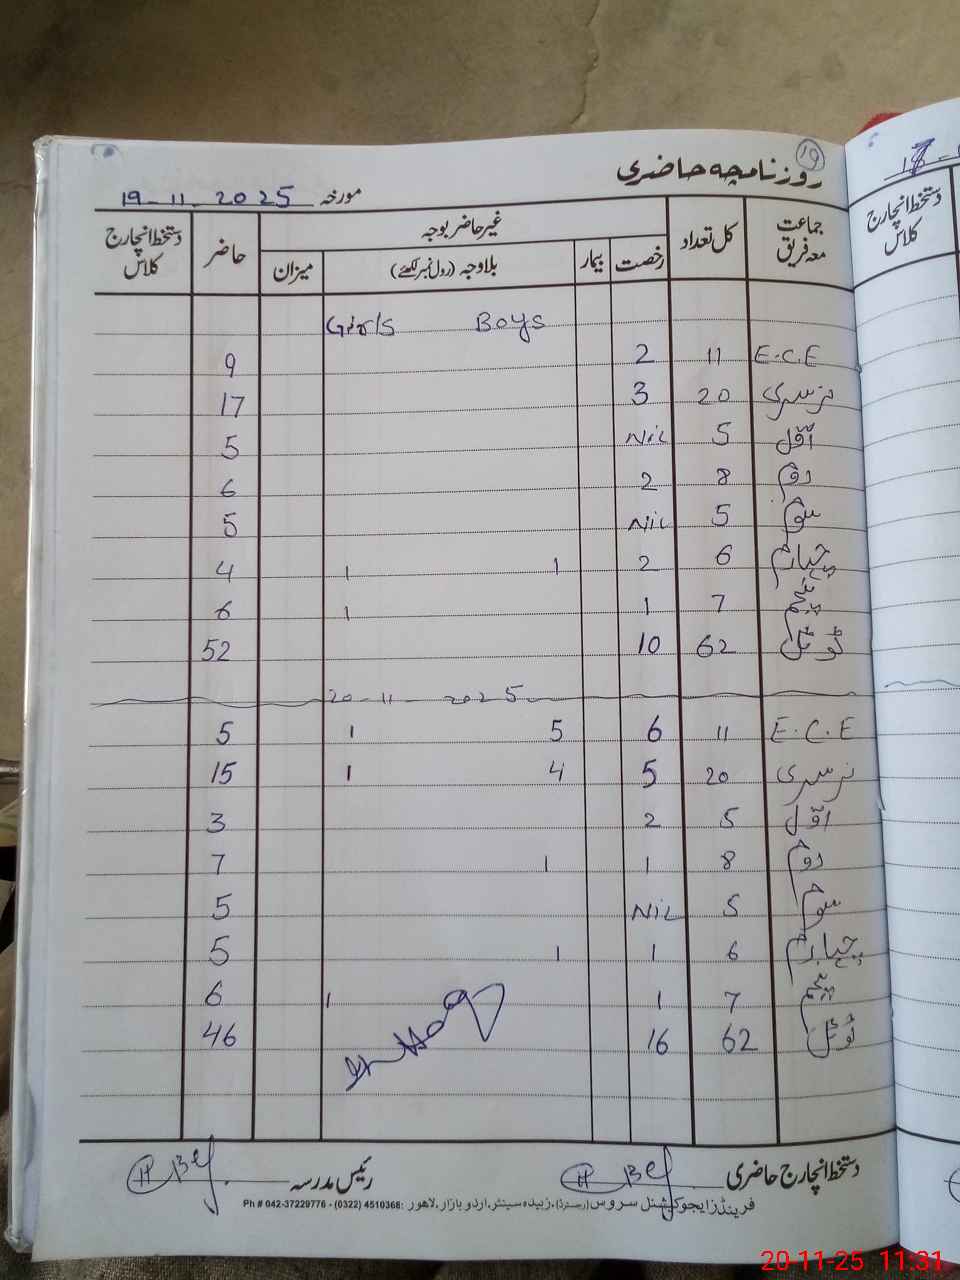 روزنامچہ حاضری 19
مورخہ 19-11-2025
جماعت معہ فریق کل تعداد غیر حاضر بوجہ حاضر دستخط انچارج کلاس
رخصت بیمار بلاوجہ (رول نمبر لکھئے) میزان
Girls Boys
E.C.E 11 2 9
نرسری 20 3 17
اوّل 5 Nil 5
دوم 8 2 6
سوم 5 Nil 5
چہارم 6 2 1 1 4
پنجم 7 1 1 6
ٹوٹل 62 10 52
20-11-2025
E.C.E 11 6 5 1 5
نرسری 20 5 4 1 15
اوّل 5 2 3
دوم 8 1 1 7
سوم 5 Nil 5
چہارم 6 1 1 5
پنجم 7 1 1 6
ٹوٹل 62 16 46
دستخط انچارج حاضری
رئیس مدرسہ
فرینڈز ایجوکیشنل سروس (رجسٹرڈ)، زبیدہ سینٹر، اردو بازار، لاہور Ph # 042-37229776 - (0322) 4510368:
دستخط انچارج کلاس
20-11-25 11:31